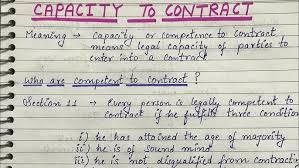 CAPACITY TO CONTRACT
Meaning → Capacity or competence to contract
means legal capacity of parties to
enter into a contract
Who are competent to contract ?
Section 11 → Every person is legally competent to
contract if he fulfils three condition
i) he has attained the age of majority
ii) he is of sound mind
iii) he is not disqualified from contracti